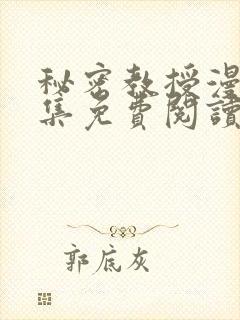 秘密教授漫
集免費閱讀
郭底灰